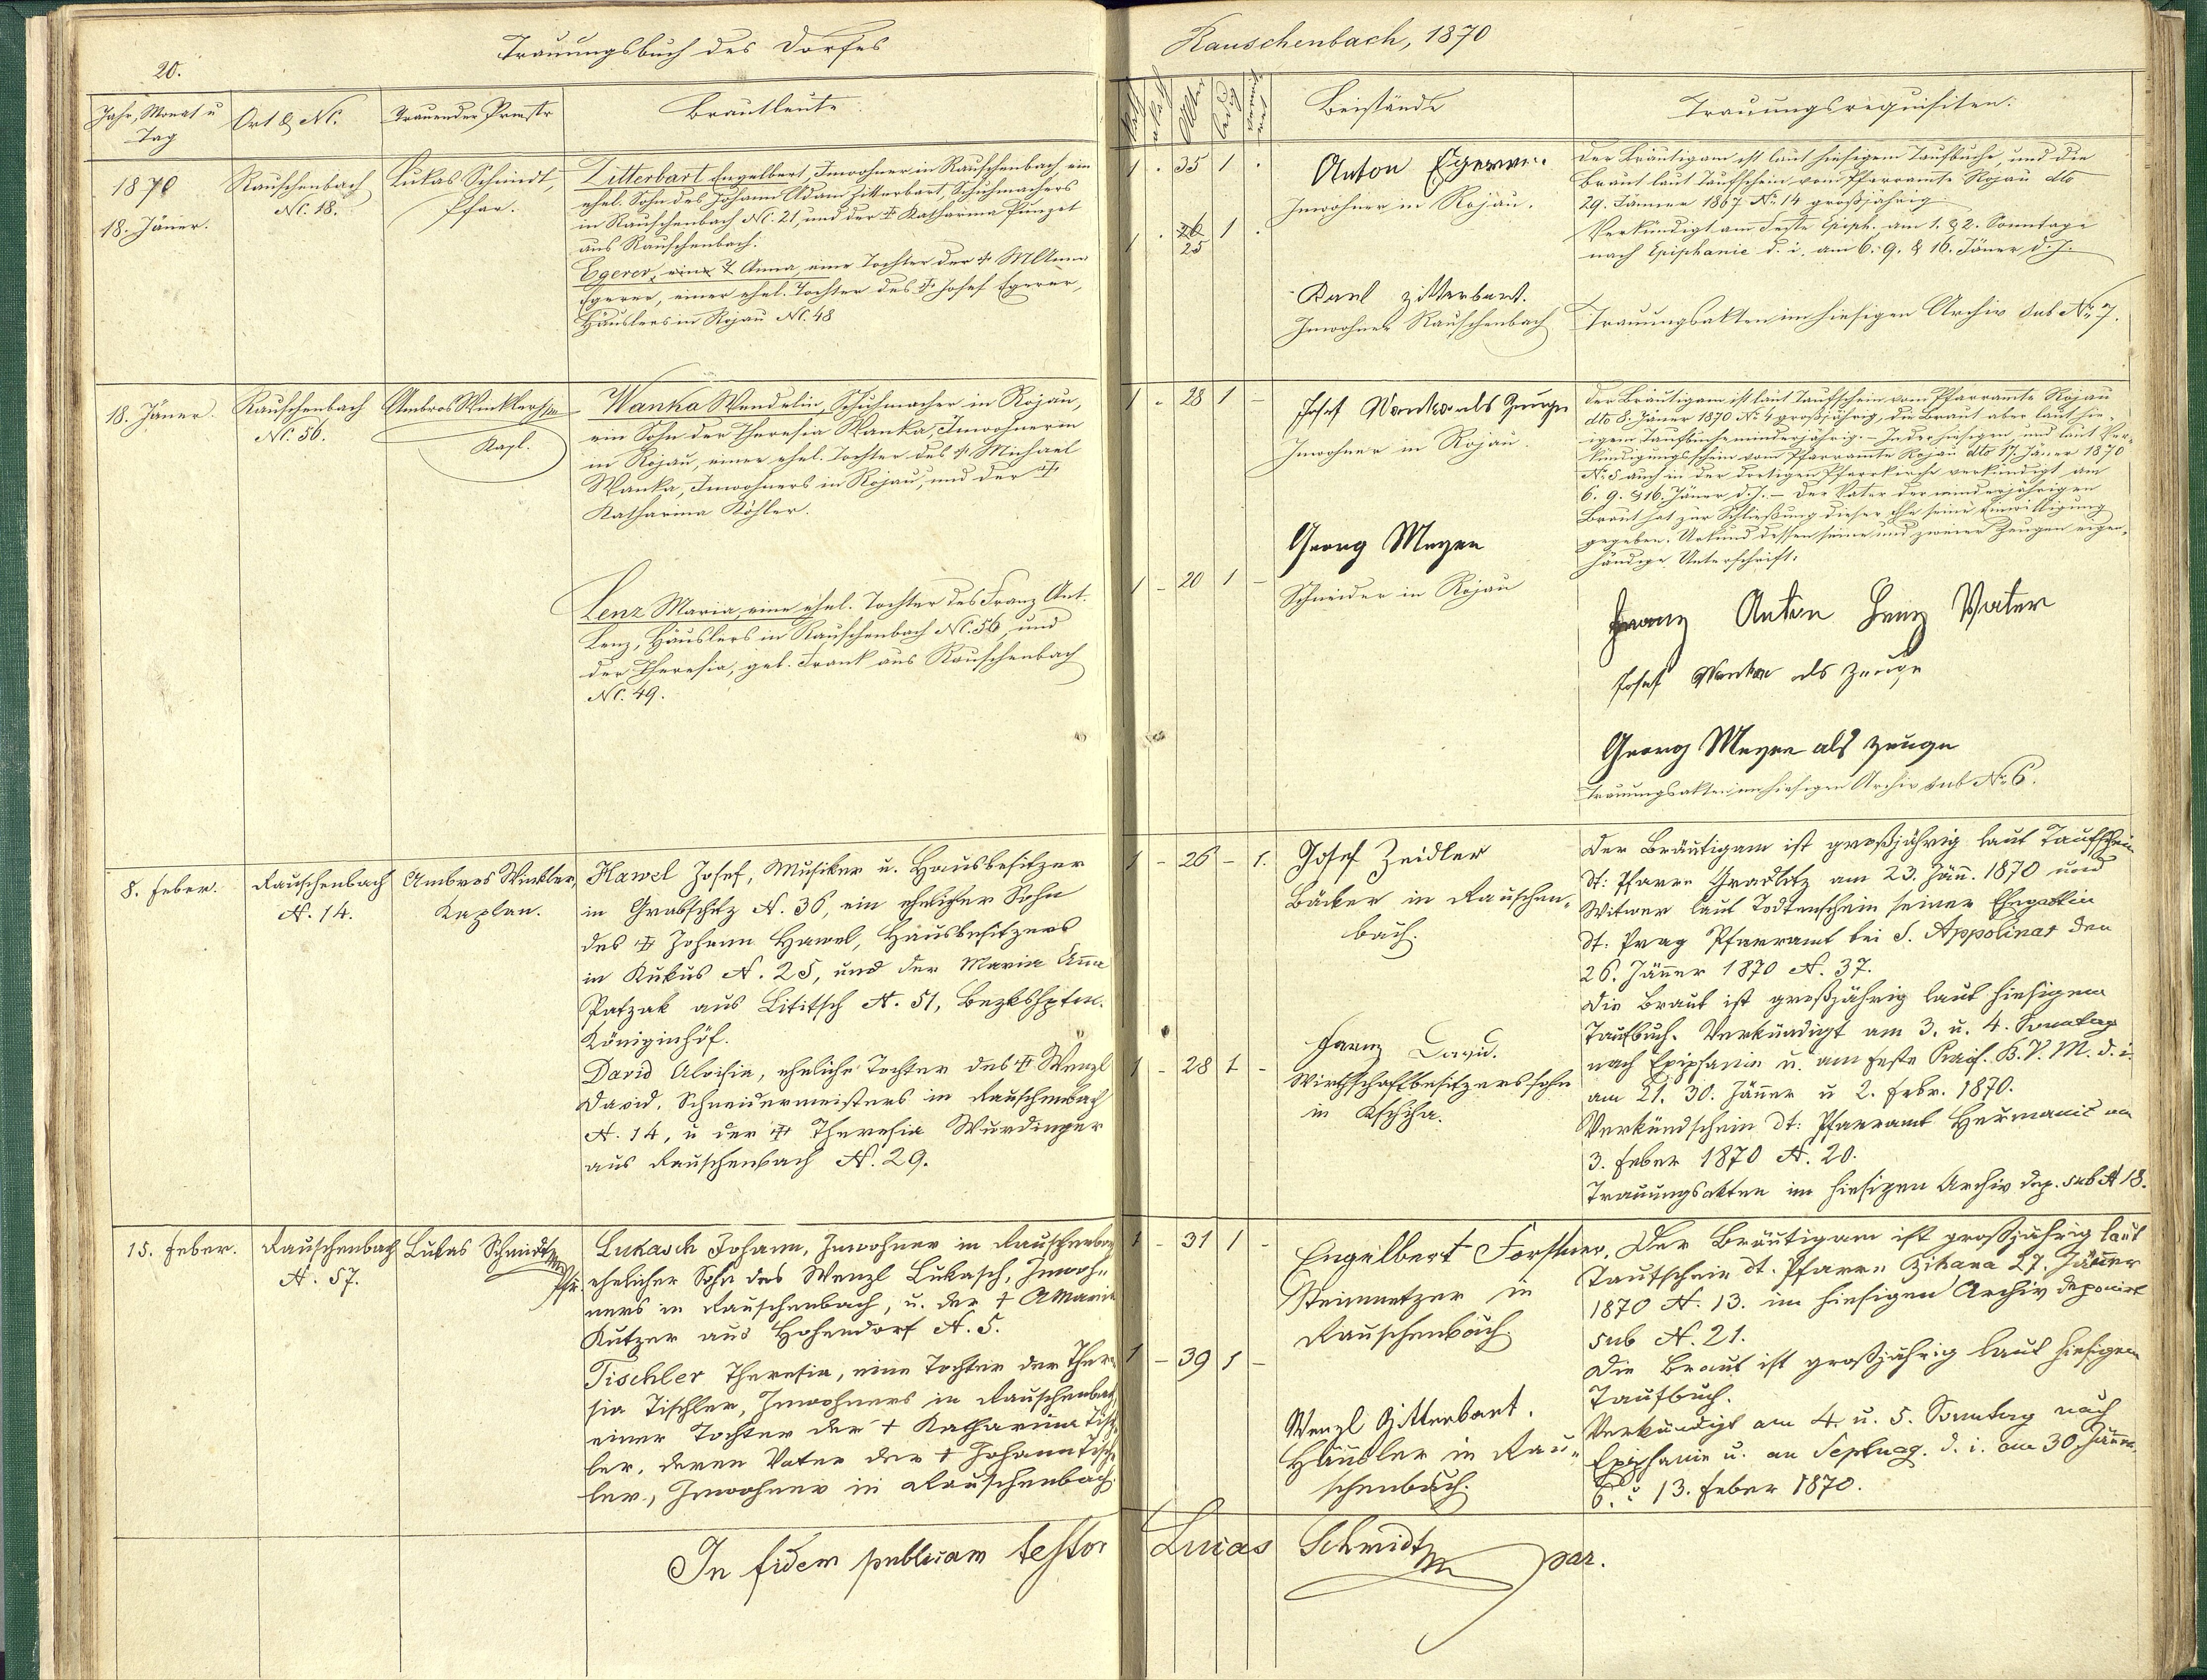 20.
Trauungsbuch des Dorfes
Rauschenbach, 1870
Jahr, Monat u
Tag
Ort & NC.
Trauender Priester
Brautleute
Alter
Beistände
Trauungsrequisiten.
1870
18. Jäner.
Rauschenbach
NC. 18.
Lukas Schmidt,
Pfar.
Zitterbart Engelbert, Inwohner in Rauschenbach ein
ehel. Sohn des Johann Adam Zitterbart, Schuhmachers
in Rauschenbach NC. 21, und der † Katharina Punzet
aus Rauschenbach.
Egerer, eine † Anna, eine Tochter der † M Anna
Egerer, einer ehel. Tochter des † Josef Egerer,
Häuslers in Rojau NC. 48
1 . 35 1 .
1 . 26 1 .
25
Anton Egerer.
Inwohner in Rojau.
Karl Zitterbart.
Inwohner Rauschenbach
Der Bräutigam ist laut hiesigem Taufbuche, und die
Braut laut Taufschein vom Pfarramte Rojau dto
29. Jänner 1867 No 14 großjährig
Verkündigt am Feste Epiph. am 1. & 2. Sonntage
nach Epiphanie d. i. am 6. 9. & 16. Jäner d. J.
Trauungsakten im hiesigen Archiv sub No 7.
18. Jäner.
Rauschenbach
NC. 56.
Ambros Winkler
Kapl.
Wanka Wendelin, Schuhmacher in Rojau,
ein Sohn der Theresia Wanka, Inwohnerin
in Rojau, einer ehel. Tochter des † Michael
Wanka, Inwohners in Rojau, und der †
Katharina Köhler.
Lenz Maria, eine ehel. Tochter des Franz Ant.
Lenz, Häuslers in Rauschenbach NC. 56, und
der Theresia, geb. Frank aus Rauschenbach
NC. 49.
1 - 28 1 -
1 - 20 1 -
Josef Wanka als Zeuge
Inwohner in Rojau.
Georg Meyer
Schneider in Rojau
Der Bräutigam ist laut Taufschein vom Pfarramte Rojau
dto 8. Jäner 1870 No 4 großjährig, die Braut aber laut hie-
igem Taufbuche minderjährig. – In der hiesigen und laut Ver-
kündigungsschein vom Pfarramte Rojau dto 17. Jäner 1870
No 5 auch in der dortigen Pfarrkirche verkündigt am
6. 9. & 16. Jäner d. J. – Der Vater der minderjährigen
Braut hat zur Schließung dieser Ehe seine Einwilligung
gegeben. Urkund dessen seine und zweier Zeugen eigen-
händige Unterschrift.
Franz Anton Lenz Vater
Josef Wanka als Zeuge
Georg Meyer als Zeuge
Trauungsakten im hiesigen Archiv sub No 6.
8. Feber.
Rauschenbach
N. 14.
Ambros Winkler,
Kaplan.
Hawel Josef, Musiker u. Hausbesitzer
in Grabschitz N. 36, ein ehelicher Sohn
des † Johann Hawel, Hausbesitzers
in Kukus N. 25, und der Maria Anna
Patzak aus Lititsch N. 51, Bezkshptm.
Königinhof.
David Aloisia, eheliche Tochter des † Wenzl
David, Schneidermeisters in Rauschenbach
N. 14, u der † Theresia Wurdinger
aus Rauschenbach N. 29.
1 - 26 - 1.
1 - 28 1 -
Josef Zeidler
Bäcker in Rauschen-
bach.
Franz David.
Wirthschaftbesitzerssohn
in
Der Bräutigam ist großjährig laut Taufschein
dt: Pfarre Gradlitz am 23. Jänn. 1870 und
Witwer laut Todtenschein seiner Ehegattin
dt: Prag Pfarramt bei S. Appolinar den
26. Jänner 1870 N. 37.
Die Braut ist großjährig laut hiesigem
Taufbuch. Verkündigt am 3. u. 4. Sonntag
nach Epiphanie u. am Feste Praes. B. V. M. d. i.
am 21. 30. Jänner u 2. Febr. 1870.
Verkündschein dt: Pfarramt Hermanic am
3. Feber 1870 N. 20.
Trauungsakten im hiesigen Archiv dep. sub N 18.
15. Feber.
Rauschenbach
N. 57.
Lukas Schmidt
Pfr.
Lukasch Johann, Inwohner in Rauschenbach
ehelicher Sohn des Wenzl Lukasch, Inwoh-
ners in Rauschenbach, u. der † A Maria
Kutzer aus Hohendorf N. 5.
Tischler Theresia, eine Tochter der There-
sia Tischler, Inwohners in Rauschenbach,
einer Tochter der † Katharina Tisch-
ler, deren Vater der † Johann Tisch-
ler, Inwohner in Rauschenbach.
1 - 31 1 -
1 - 39 1 -
Engelbert Forstner,
Steinmetzer in
Rauschenbach
Wenzl Zitterbart.
Häusler in Rau-
schenbach.
Der Bräutigam ist großjährig laut
Taufschein dt. Pfarre Zihana 27. Jänner
1870 N. 13. im hiesigen Archiv deponirt
sub N. 21.
Die Braut ist großjährig laut hiesigem
Taufbuch.
Verkündigt am 4. u. 5. Sonntag nach
Epiphanie u. an Septuag. d. i. am 30. Jänner
6. u 13. Feber 1870.
In fidem publicam testor Lucas Schmidt par.